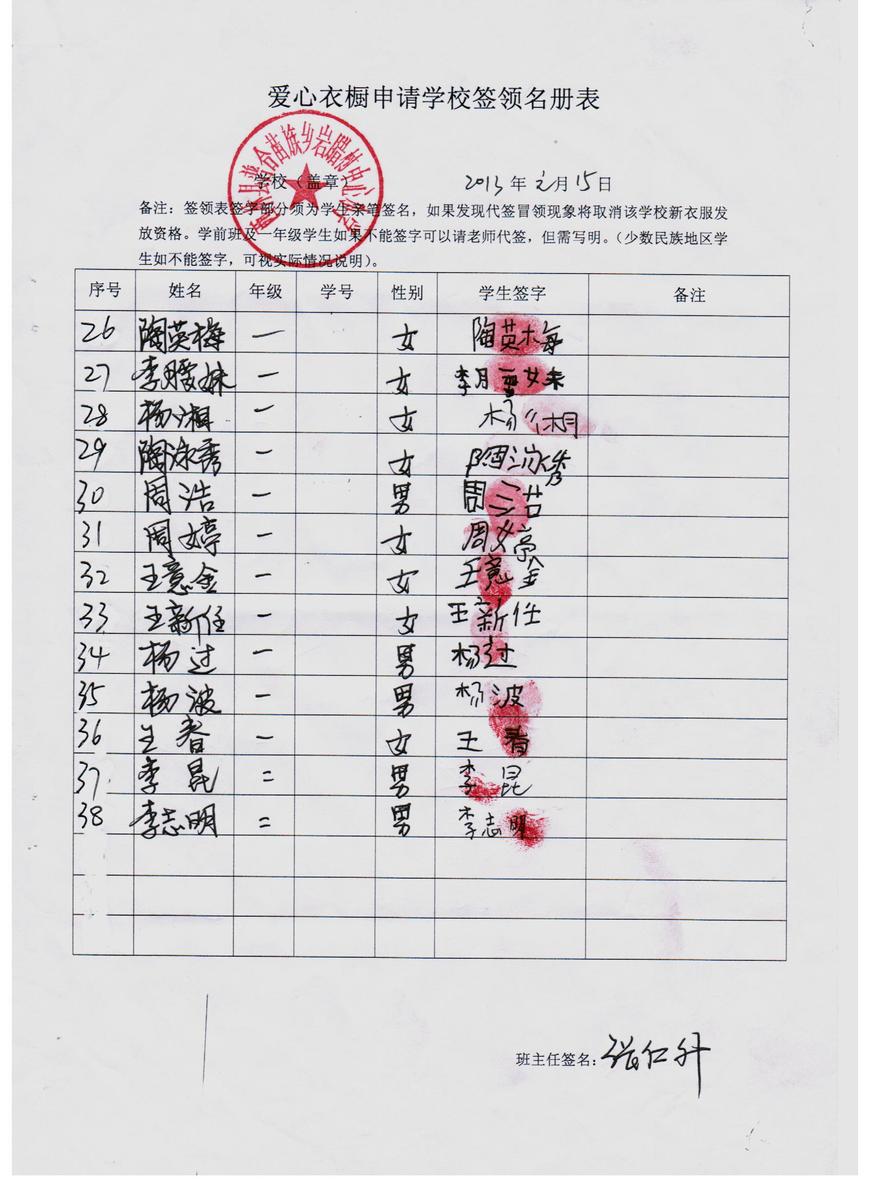 爱心衣橱申请学校签领名册表
苗族乡岩腊村中心
学校（盖章） 2013 年 元月 15日
备注：签领表签字部分须为学生亲笔签名，如果发现代签冒领现象将取消该学校新衣服发
放资格。学前班及一年级学生如果不能签字可以请老师代签，但需写明。（少数民族地区学
生如不能签字，可视实际情况说明）。
序号 姓名 年级 学号 性别 学生签字 备注
26 陶英梅 一 女 陶英梅
27 李腰妹 一 女 李腰妹
28 杨湘 一 女 杨湘
29 陶泳秀 一 女 陶泳秀
30 周浩 一 男 周浩
31 周婷 一 女 周婷
32 王意金 一 女 王意金
33 王新任 一 女 王新任
34 杨过 一 男 杨过
35 杨波 一 男 杨波
36 王春 一 女 王春
37 李昆 二 男 李昆
38 李志明 二 男 李志明
班主任签名：张仁升